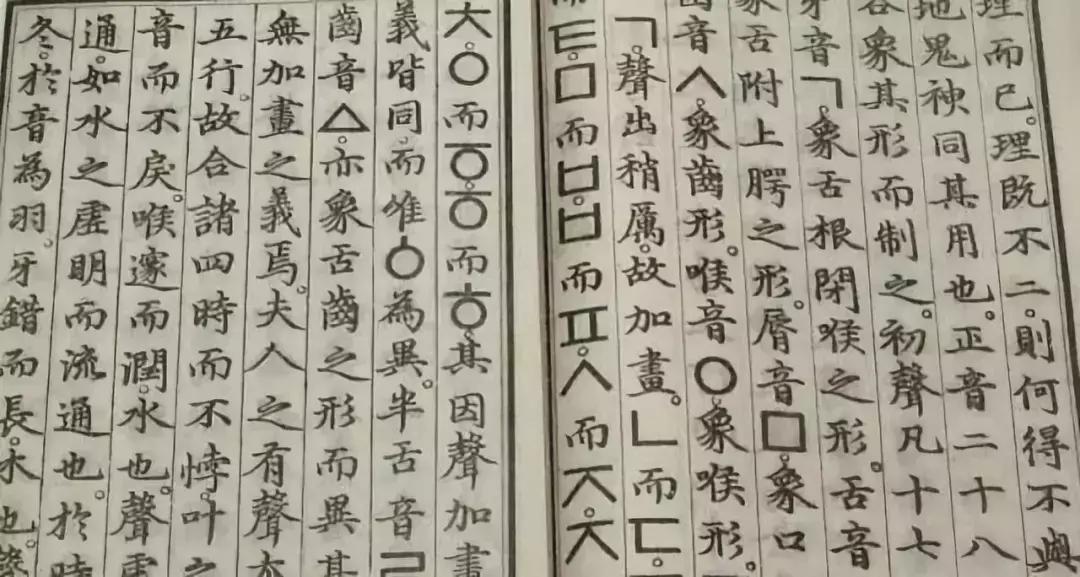 理而已。理既不二。則何得不與
地鬼神同其用也。正音二十八
各象其形而制之。初聲凡十七
牙音ㄱ。象舌根閉喉之形。舌音
象舌附上腭之形。脣音ㅁ。象口
齒音ㅅ。象齒形。喉音ㅇ。象喉形。
ㄱ。聲出稍厲。故加畫。ㄴ而ㄷ。
而ㅌ。ㅁ而ㅂ。ㅂ而ㅍ。ㅅ而ㅈ。ㅈ
ㅊ。ㅇ而ㆆ。ㆆ而ㅎ。其因聲加畫
義皆同。而唯ㆁ為異。半舌音ㄹ
齒音ㅿ。亦象舌齒之形而異其
無加畫之義焉。夫人之有聲本
五行。故合諸四時而不悖。叶之
音而不戾。喉邃而潤。水也。聲虛
通。如水之虛明而流通也。於時
冬。於音為羽。牙錯而長。木也。聲